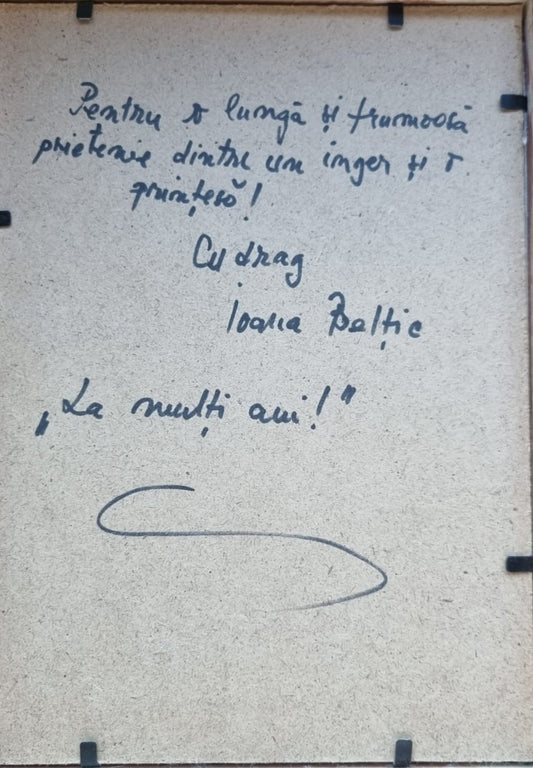 Pentru o lungă și frumoasă
prietenie dintre un înger și o
prințesă!
Cu drag
Ioana Balțic
„La mulți ani!"